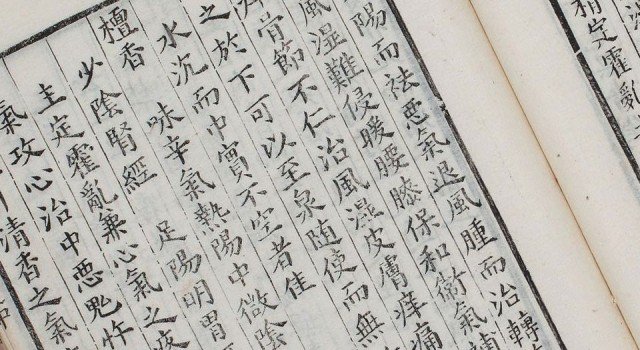 精定霍亂
陽而祛惡氣退風腫而治轉
風濕難侵暖腰膝保和衛氣
骨節不仁治風濕皮膚痒痛
之於下可以至泉隨使而無
水沉而中實不空者佳
檀香 味辛氣熱陽中微陰
少陰腎經 足陽明胃
主定霍亂兼心氣之疼
氣攻心治中惡鬼忤
清香之氣